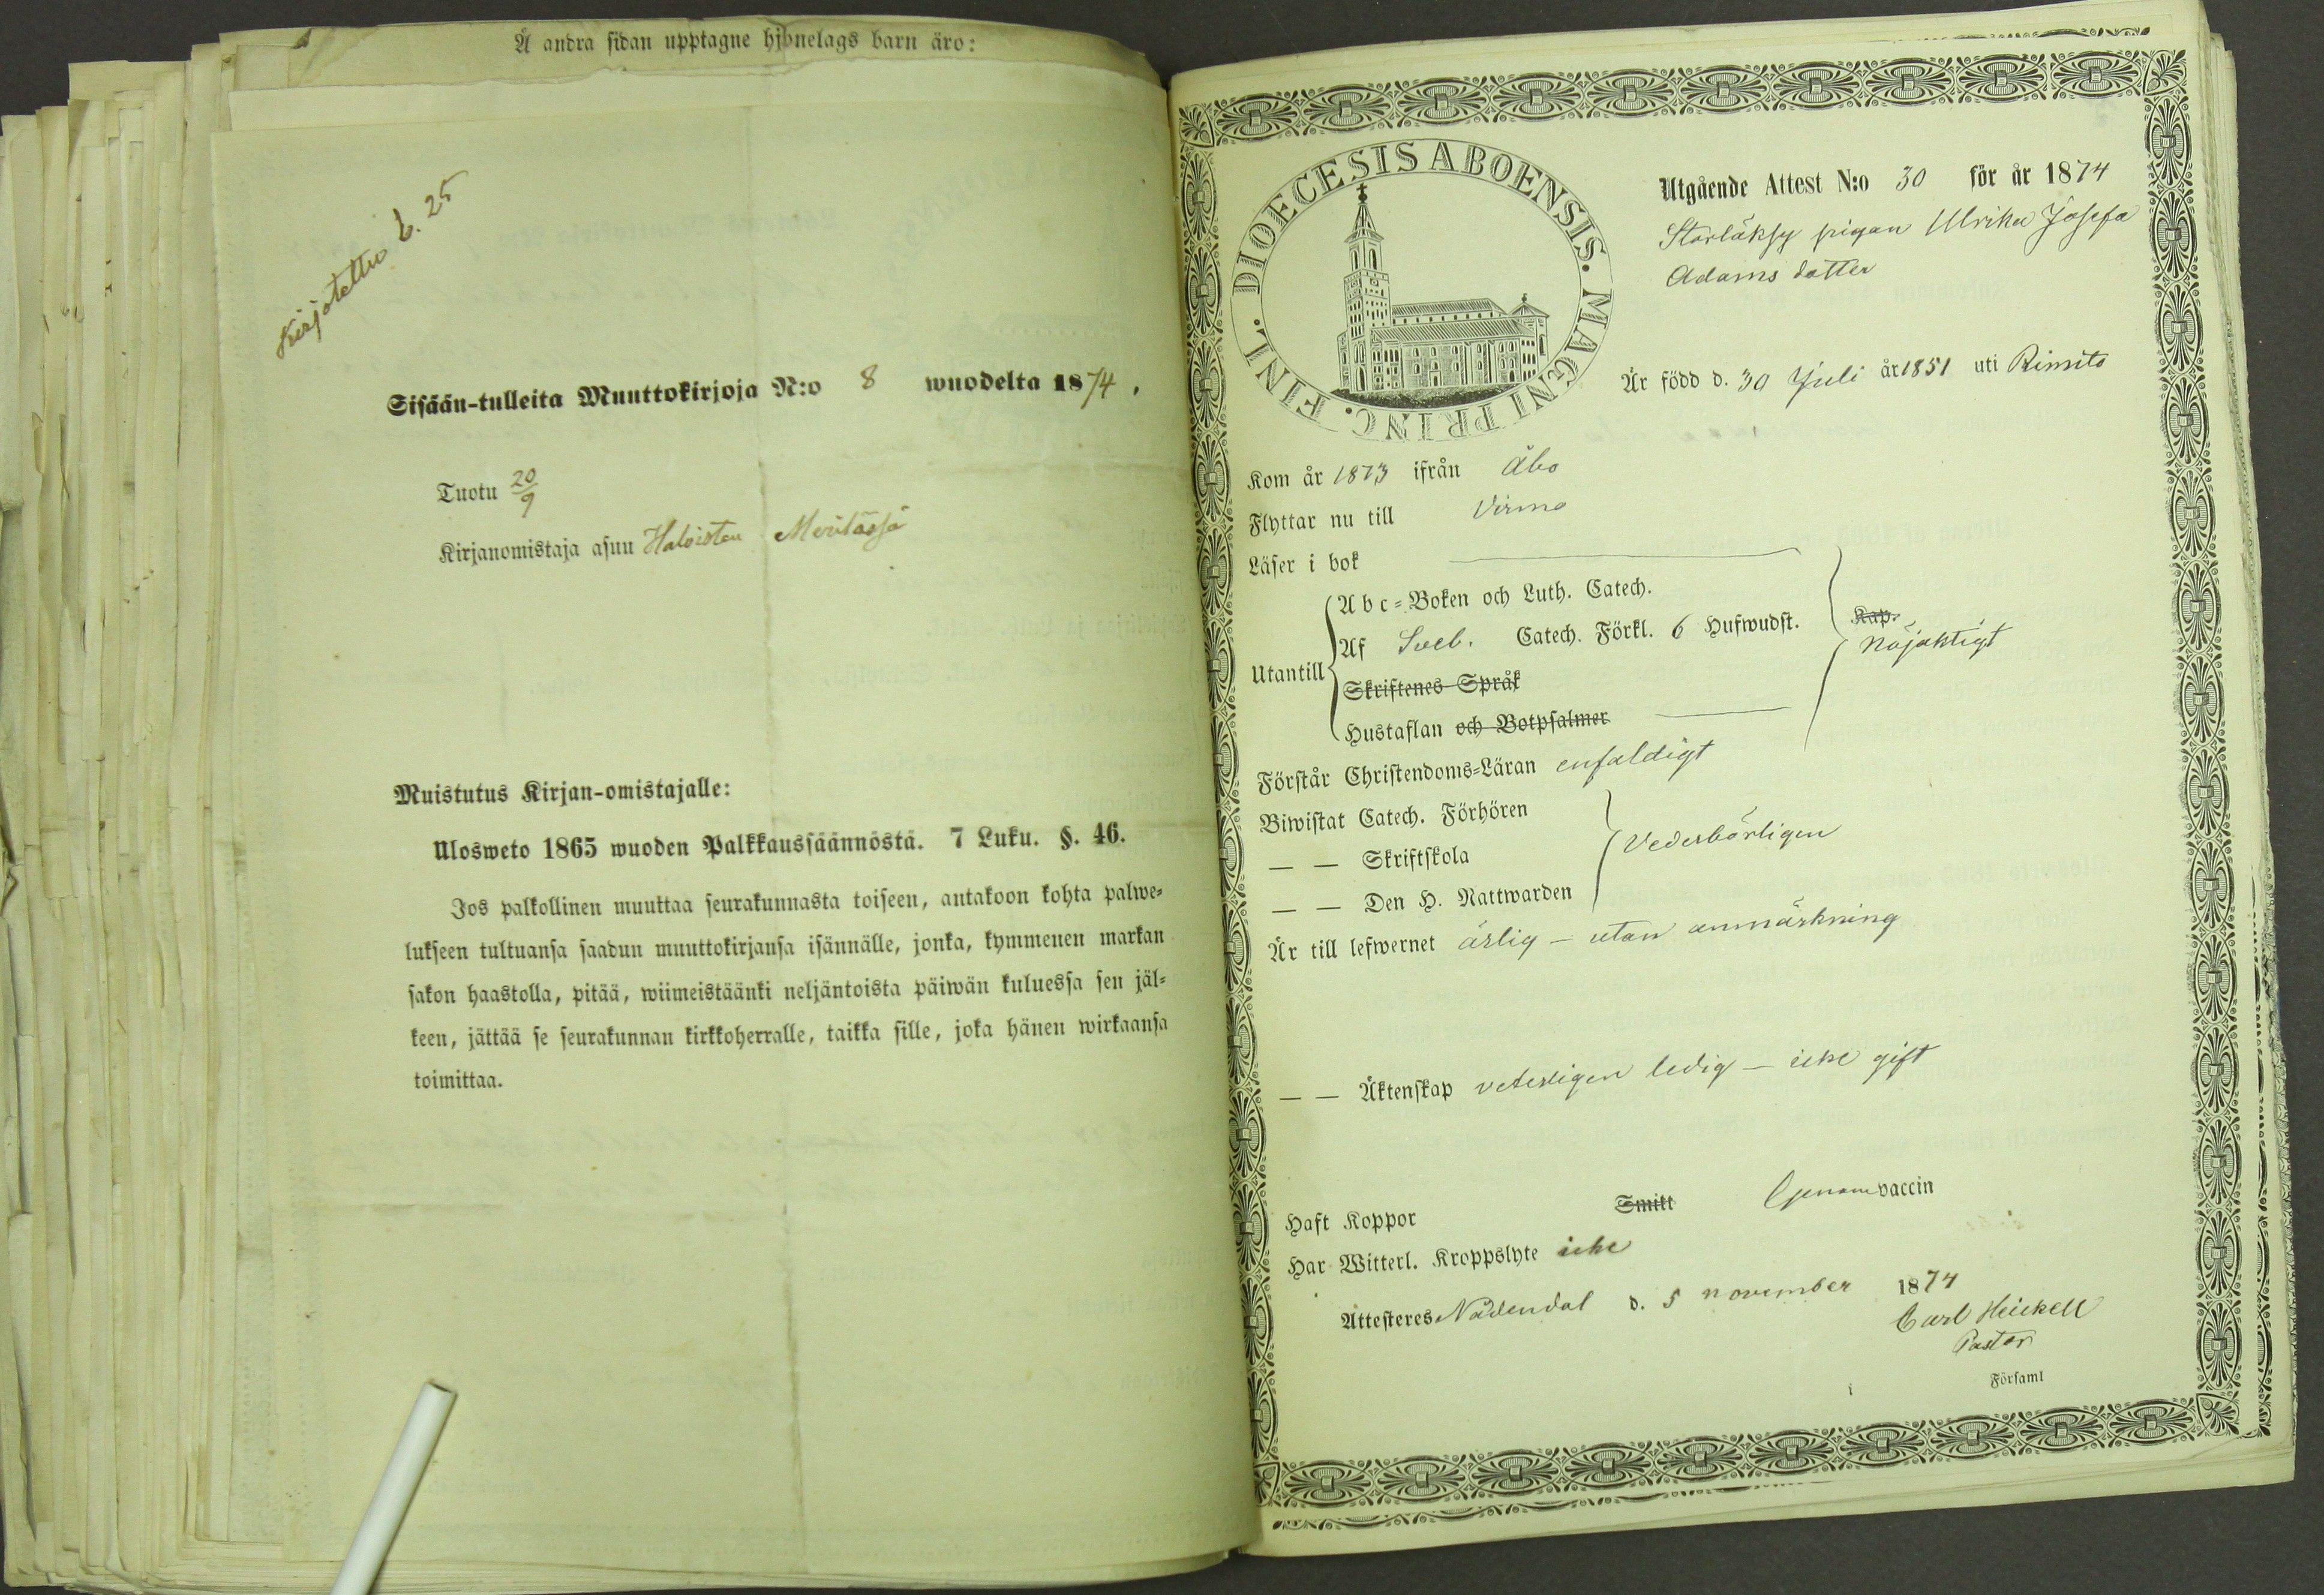 Å andra sidan upptagne hjonelags barn äro:
Kirjotettu b. 25
Sisään-tulleita Muuttokirjoja N:o 8 wuodelta 1874.
Tuotu 20/9
Kirjanomistaja asuu Haloisten
Muistutus Kirjan-omistajalle:
Ulosweto 1865 wuoden Palkkaussäännöstä. 7 Luku. §. 46.
Jos palkollinen muuttaa seurakunnasta toiseen, antakoon kohta palwe-
lukseen tultuansa saadun muuttokirjansa isännälle, jonka, kymmenen markan
sakon haastolla, pitää, wiimeistäänki neljäntoista päiwän kuluessa sen jäl-
keen, jättää se seurakunnan kirkkoherralle, taikka sille, joka hänen wirkaansa
toimittaa.
DIOECESIS ABOENSIS. MAGNI PRINC. FINL.
Utgående Attest N:o 30 för år 1874
pigan Ulrika Josefa
Adams dotter
Är född d. 30 Juli år 1851 uti Rimito
Kom år 1873 ifrån Åbo
Flyttar nu till Virmo
Läser i bok
Utantill
Abc-Boken och Luth. Catech.
Af Sveb. Catech. Förkl. 6 Hufwudst.
Skriftenes Språk
Hustaflan och Botpsalmer
Kap.
Nöjaktigt
Förstår Christendoms-Läran enfaldigt
Biwistat Catech. Förhören
— — Skriftskola
— — Den H. Nattwarden
Vederbörligen
Är till lefwernet ärlig – utan anmärkning
— — Äktenskap veterligen ledig – icke gift
Haft Koppor Smitt Genom vaccin
Har Witterl. Kroppslyte icke
Attesteres Nådendal d. 5 november 1874
Carl Heickell
Pastor
i Församl